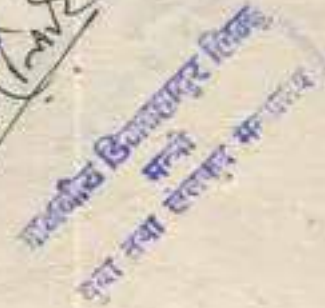 माननीय डिगबहादुर लिम्बु
मन्त्री
युवा तथा खेलकुद मन्त्रालय